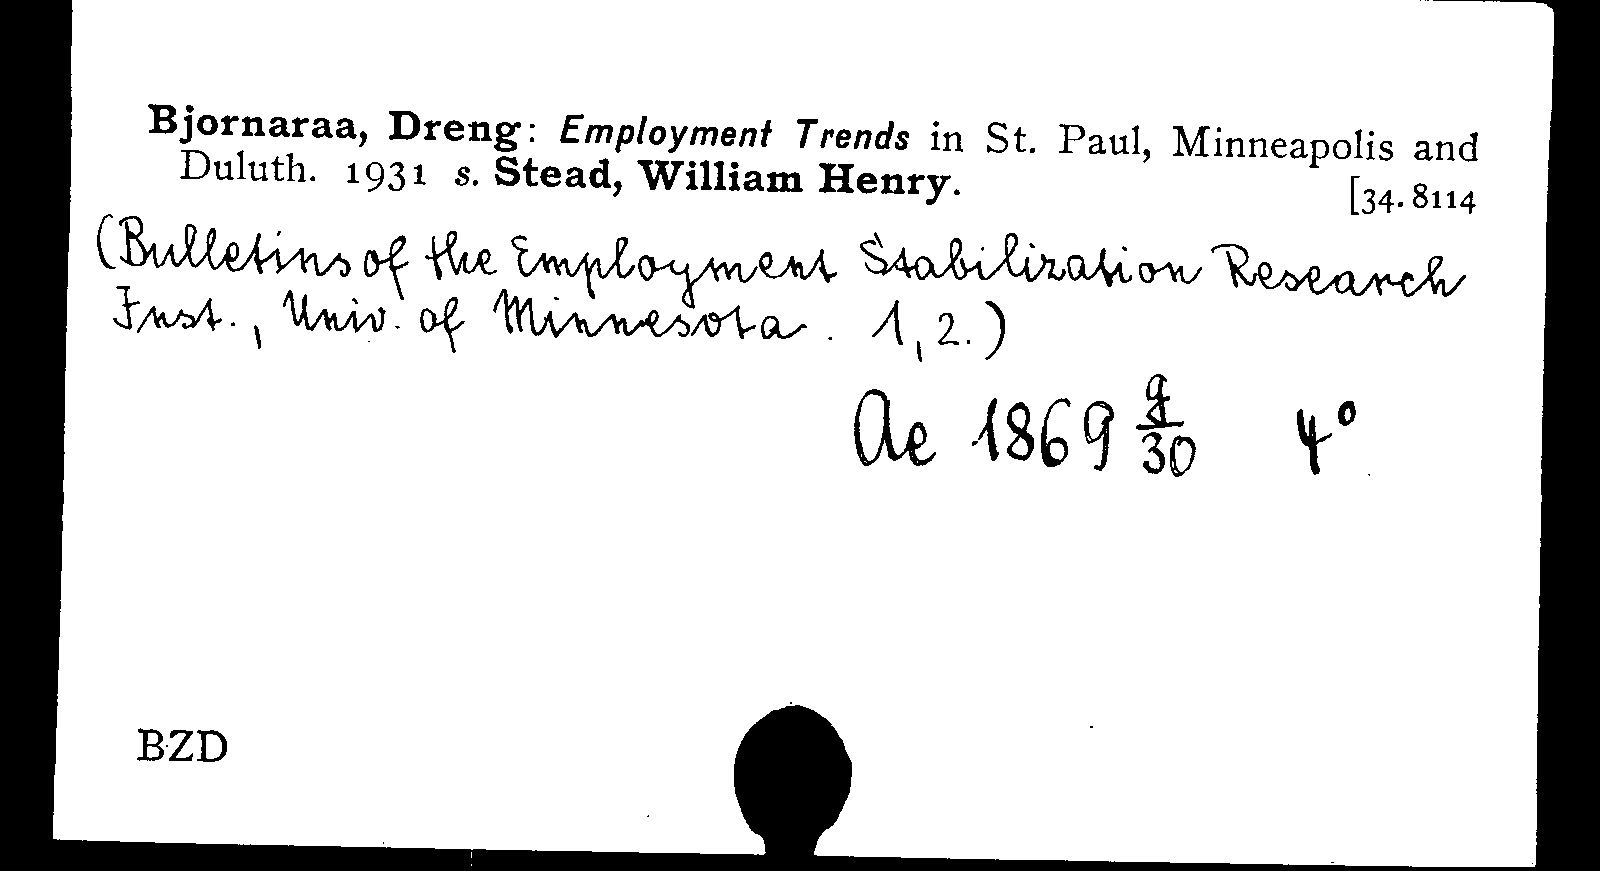 Bjornaraa, Dreng: Employment Trends in St. Paul, Minneapolis and
Duluth. 1931 s. Stead, William Henry. [34.8114
(Bulletins of the Employment Stabilization Research
Inst., Univ. of Minnesota. 1, 2.)
Ae 1869 g/30 4°
BZD